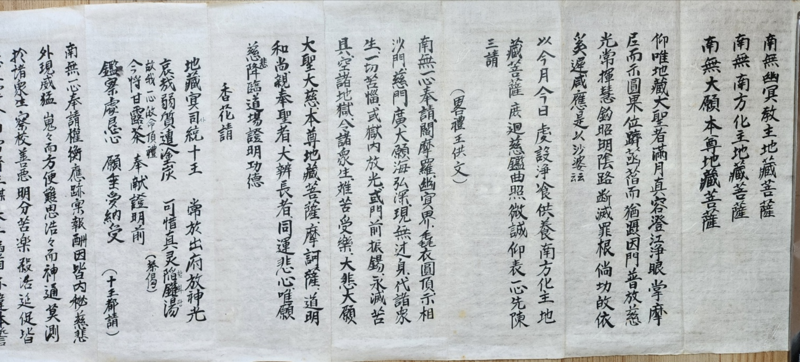 南無幽冥敎主地藏菩薩
南無南方化主地藏菩薩
南無大願本尊地藏菩薩
仰唯地藏大聖者滿月真容澄江淨眼掌摩
尼而示圓果位躋菡萏而猶躡因門普放慈
光常揮慧釰照明陰路断滅罪根倘切故依
奚遲感應是以沙婆云云
以今月今日 虔設淨食供養南方化主地
藏菩薩 庶廻慈鑑曲照微誠仰表一心先陳
三請
(畧禮王供文)
南無一心奉請閻摩羅幽冥界毳衣圓頂示相
沙門慈門廣大願海弘深現無边身代諸衆
生一切苦惱或獄內放光或門前振錫永滅苦
具空諸地獄令諸衆生離苦受樂大悲大願
大聖大慈本尊地藏菩薩摩訶薩道明
和尚親奉聖者大辨長者同運悲心唯願
慈悲降臨道場證明功德
香花請
地藏冥司統十王 常放出府放神光
哀哉弱質遭塗炭 可惜真灵陷鑊湯
故我一心帰命頂禮 (茶偈)
今將甘露茶 奉献證明前
鑑察虔恳心 願垂哀納受 (十王都請)
南無一心奉請權衡應跡案報酬因皆內秘慈悲
外現威猛 嵬々而方便難思浩々而神通莫測
於諸衆生案校善惡明分苦楽殺活延促皆